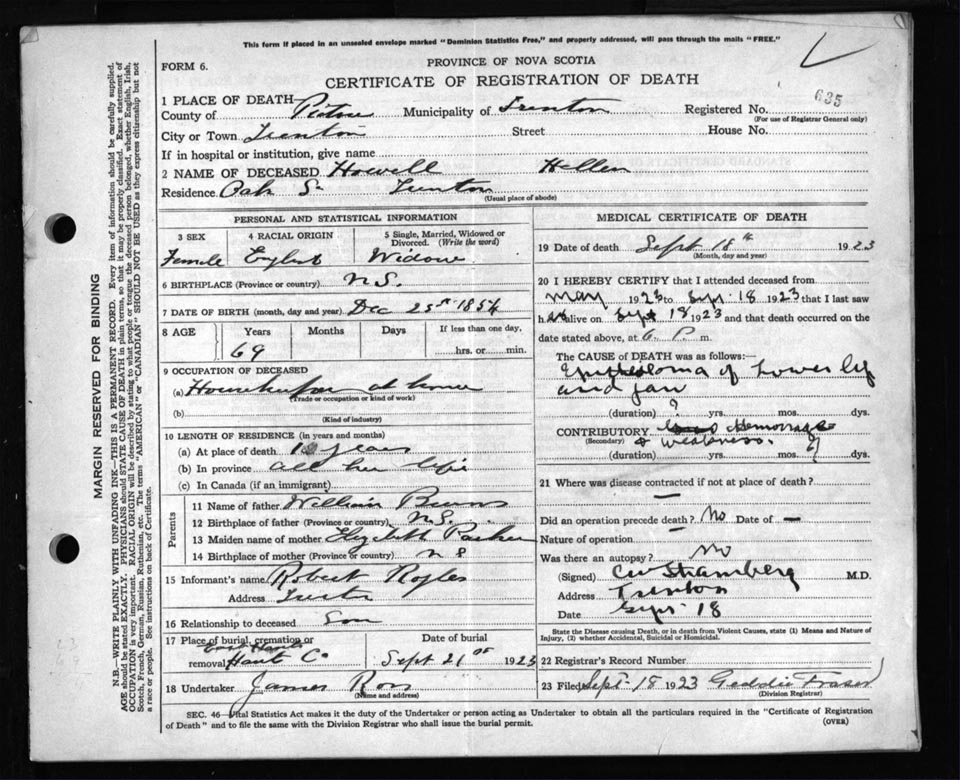 This form if placed in an unsealed envelope marked "Dominion Statistics Free," and properly addressed, will pass through the mails "FREE."
PROVINCE OF NOVA SCOTIA
FORM 6.
CERTIFICATE OF REGISTRATION OF DEATH
1 PLACE OF DEATH
County of Pictou Municipality of Trenton Registered No. 635
(For use of Registrar General only)
City or Town Trenton Street House No.
If in hospital or institution, give name
2 NAME OF DECEASED Howell Hellen
Residence Oak St Trenton
(Usual place of abode)
PERSONAL AND STATISTICAL INFORMATION
3 SEX 4 RACIAL ORIGIN 5 Single, Married, Widowed or Divorced. (Write the word)
Female English Widow
6 BIRTHPLACE (Province or country) N.S.
7 DATE OF BIRTH (month, day and year) Dec 25st 1854
8 AGE Years Months Days If less than one day,
69 hrs. or min.
9 OCCUPATION OF DECEASED
(a) Housekeeper at home
(Trade or occupation or kind of work)
(b)
(Kind of industry)
10 LENGTH OF RESIDENCE (in years and months)
(a) At place of death years
(b) In province all her life
(c) In Canada (if an immigrant)
Parents
11 Name of father William
12 Birthplace of father (Province or country) N.S.
13 Maiden name of mother Elizabeth Parker
14 Birthplace of mother (Province or country) N S
15 Informant's name Robert
Address
16 Relationship to deceased Son
17 Place of burial, cremation or Date of burial
removal Hant Co Sept 21 1923
18 Undertaker James Ross
(Name and address)
MEDICAL CERTIFICATE OF DEATH
19 Date of death Sept 18th 1923
(Month, day and year)
20 I HEREBY CERTIFY that I attended deceased from
May 1923 to Sept 18 1923 that I last saw
h er alive on Sept 18 1923 and that death occurred on the
date stated above, at 6 P. m.
The CAUSE of DEATH was as follows:—
Epithelioma of lower lip
and jaw
(duration) ? yrs. mos. dys.
CONTRIBUTORY Hemorrage
(Secondary) & weakness.
(duration) yrs. mos. ? dys.
21 Where was disease contracted if not at place of death?
—
Did an operation precede death? No Date of —
Nature of operation —
Was there an autopsy? No
(Signed) M.D.
Address Trenton
Date Sept 18
State the Disease causing Death, or in death from Violent Causes, state (1) Means and Nature of Injury, (2) whether Accidental, Suicidal or Homicidal.
22 Registrar's Record Number
23 Filed Sept 18 1923 Geddie Fraser
(Division Registrar)
SEC. 46—Vital Statistics Act makes it the duty of the Undertaker or person acting as Undertaker to obtain all the particulars required in the "Certificate of Registration
of Death" and to file the same with the Division Registrar who shall issue the burial permit. (OVER)
MARGIN RESERVED FOR BINDING
N.B.—WRITE PLAINLY WITH UNFADING INK—THIS IS A PERMANENT RECORD. Every item of information should be carefully supplied.
AGE should be stated EXACTLY. PHYSICIANS should STATE CAUSE OF DEATH in plain terms, so that it may be properly classified. Exact statement of
OCCUPATION is very important. RACIAL ORIGIN will be described by stating to what people or tongue the deceased person belonged, whether English, Irish,
Scotch, French, German, Russian, Ruthenian, etc. The terms "AMERICAN" or "CANADIAN" SHOULD NOT BE USED as they express citizenship but not
a race or people. See instructions on back of Certificate.